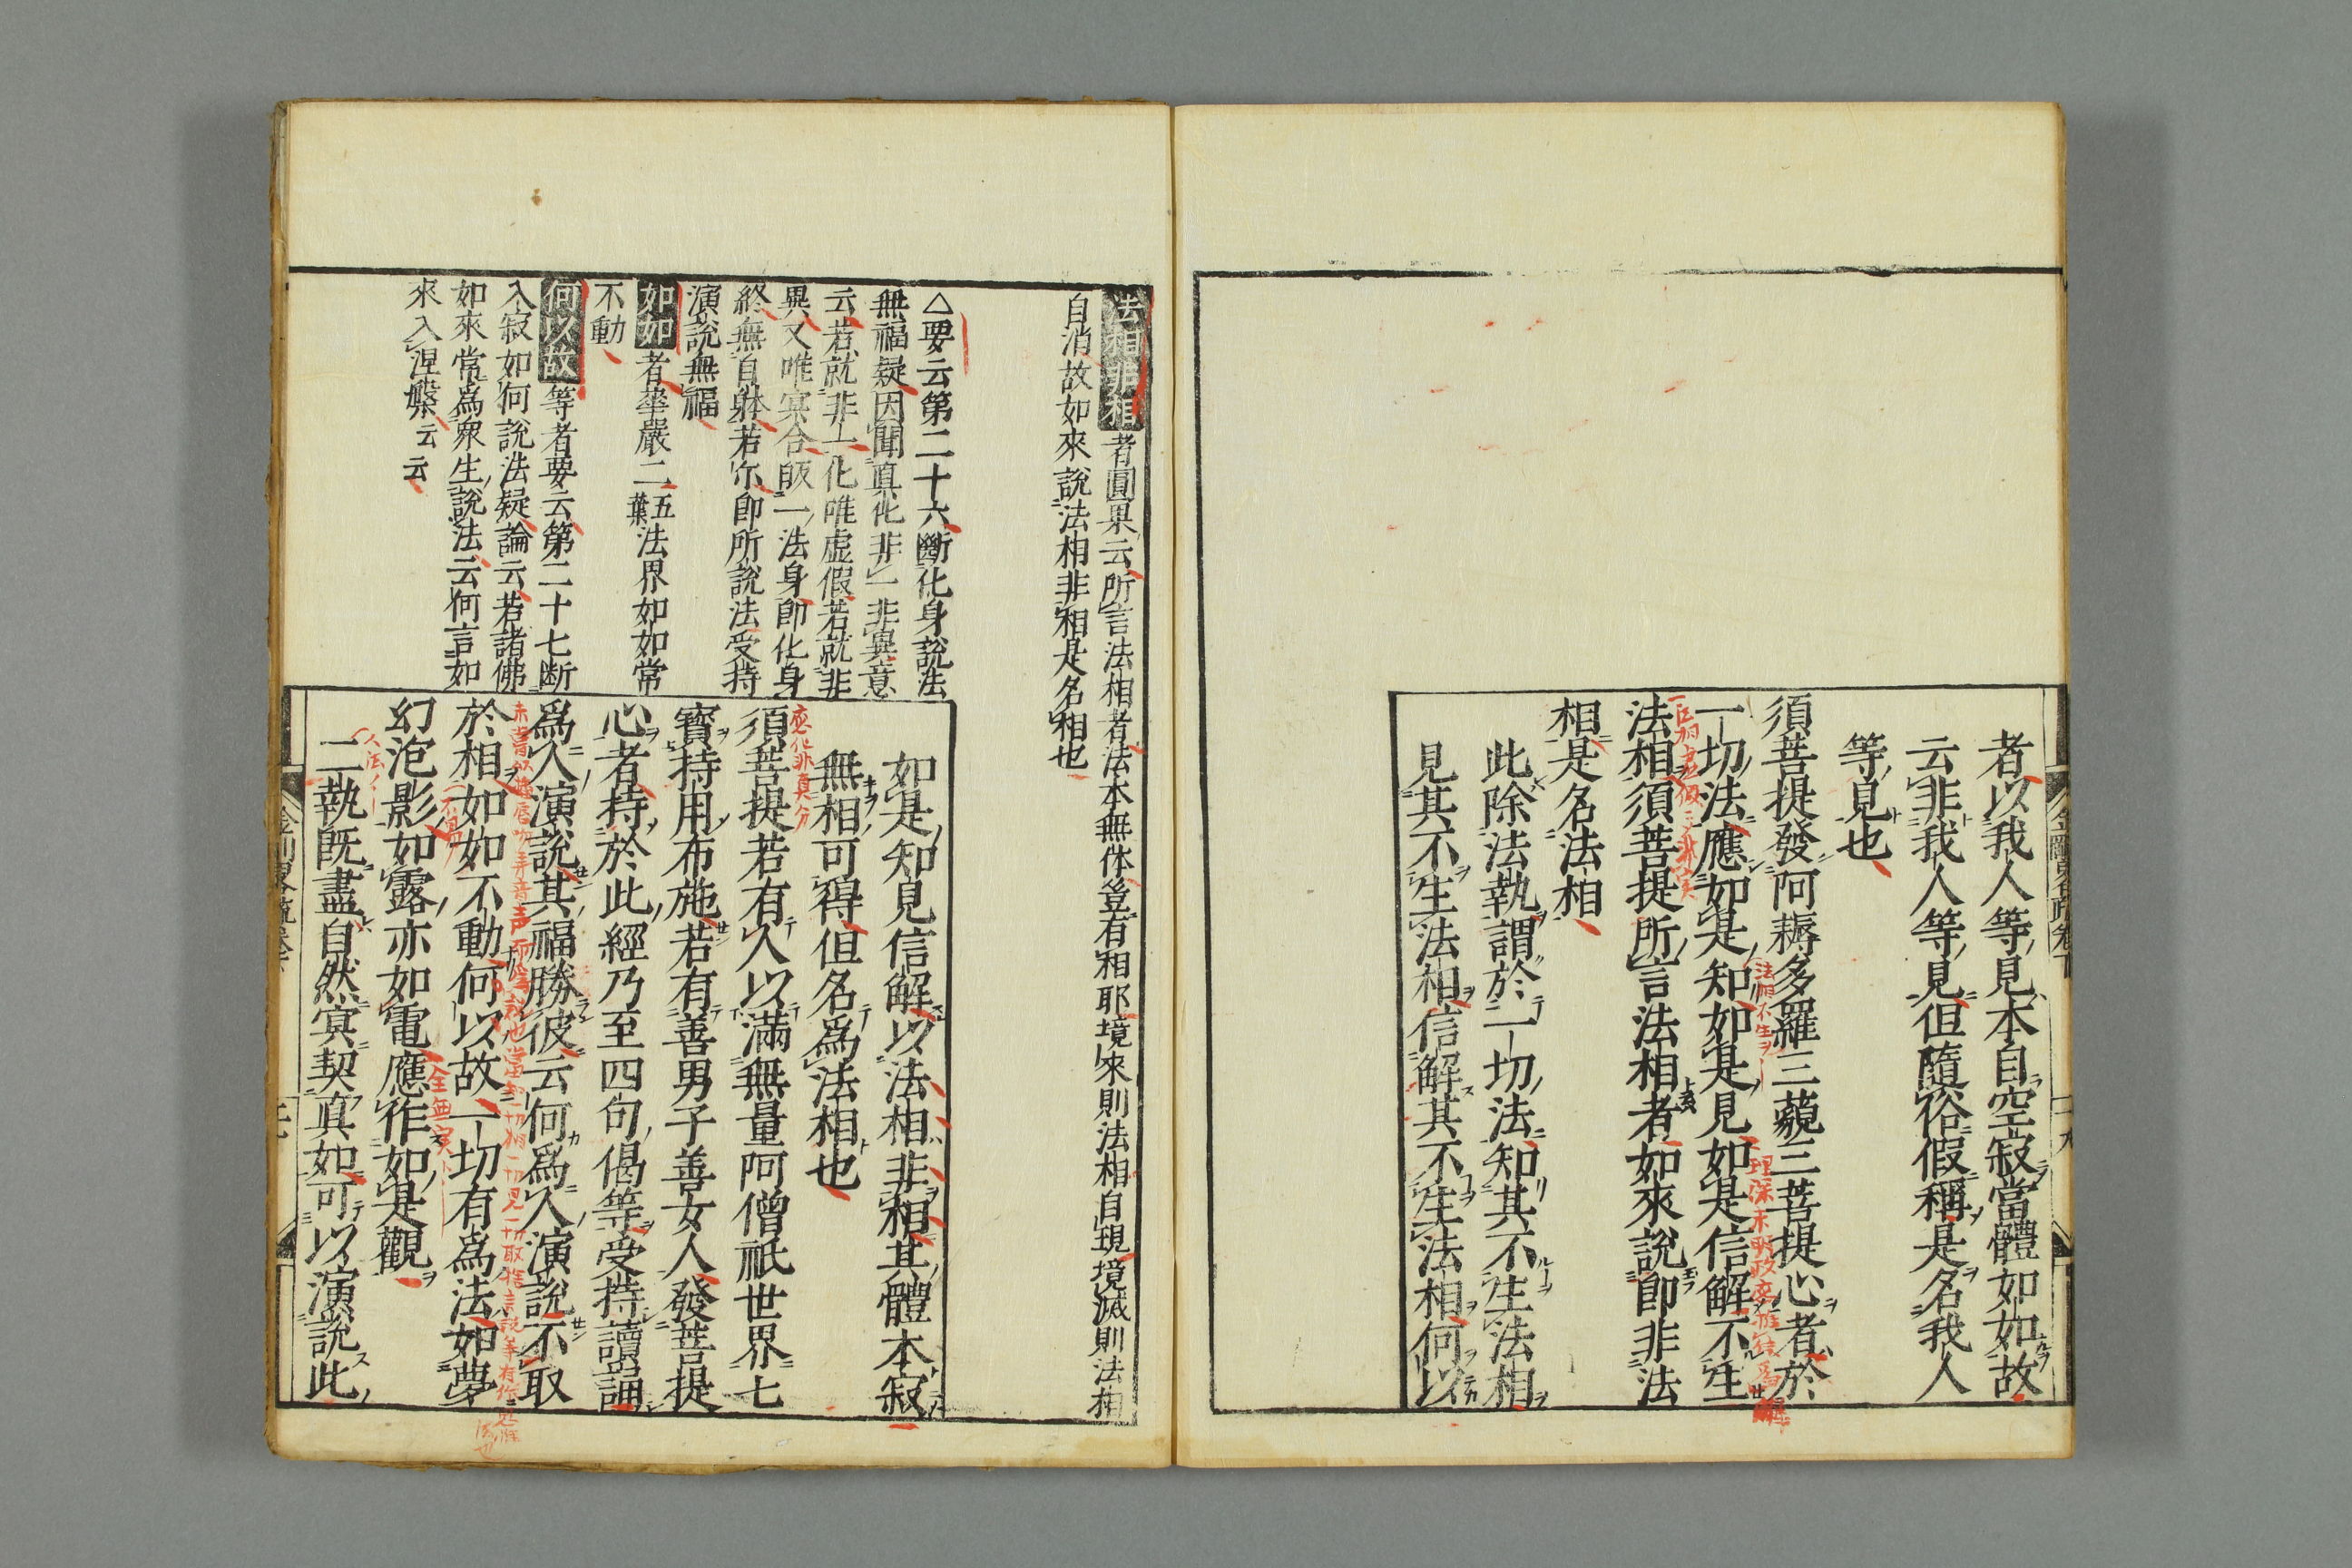 者以我人等見本自空寂當體如如故
云非我人等見但隨俗假稱是名我人
等見也
須菩提發阿耨多羅三藐三菩提心者於
一切法應如是知如是見如是信解不生
法相須菩提所言法相者如來說即非法
相是名法相
此除法執謂於一切法知其不生法相
見其不生法相信解其不生法相何以
法相非相者圓果云所言法相者法本無体豈有相耶境來則法相自現境滅則法相
自消故如來說法相非相是名相也
△要云第二十六斷化身說法
無福疑因聞真化非一非異意
云若就非一化唯虛假若就非
異又唯寔合皈一法身即化身
終無自躰若尒即所說法受持
演說無福
如如者華嚴二五葉法界如如常
不動
何以故等者要云第二十七断
入寂如何說法疑論云若諸佛
如來常為衆生說法云何言如
來入涅槃云云
如是知見信解以法相非相其體本寂
無相可得但名為法相也
應化非真分
須菩提若有人以滿無量阿僧祇世界七
寶持用布施若有善男子善女人發菩提
心者持於此經乃至四句偈等受持讀誦
為人演說其福勝彼云何為人演說不取
於相如如不動何以故一切有為法如夢
幻泡影如露亦如電應作如是觀
二執既盡自然寔契真如可以演說此